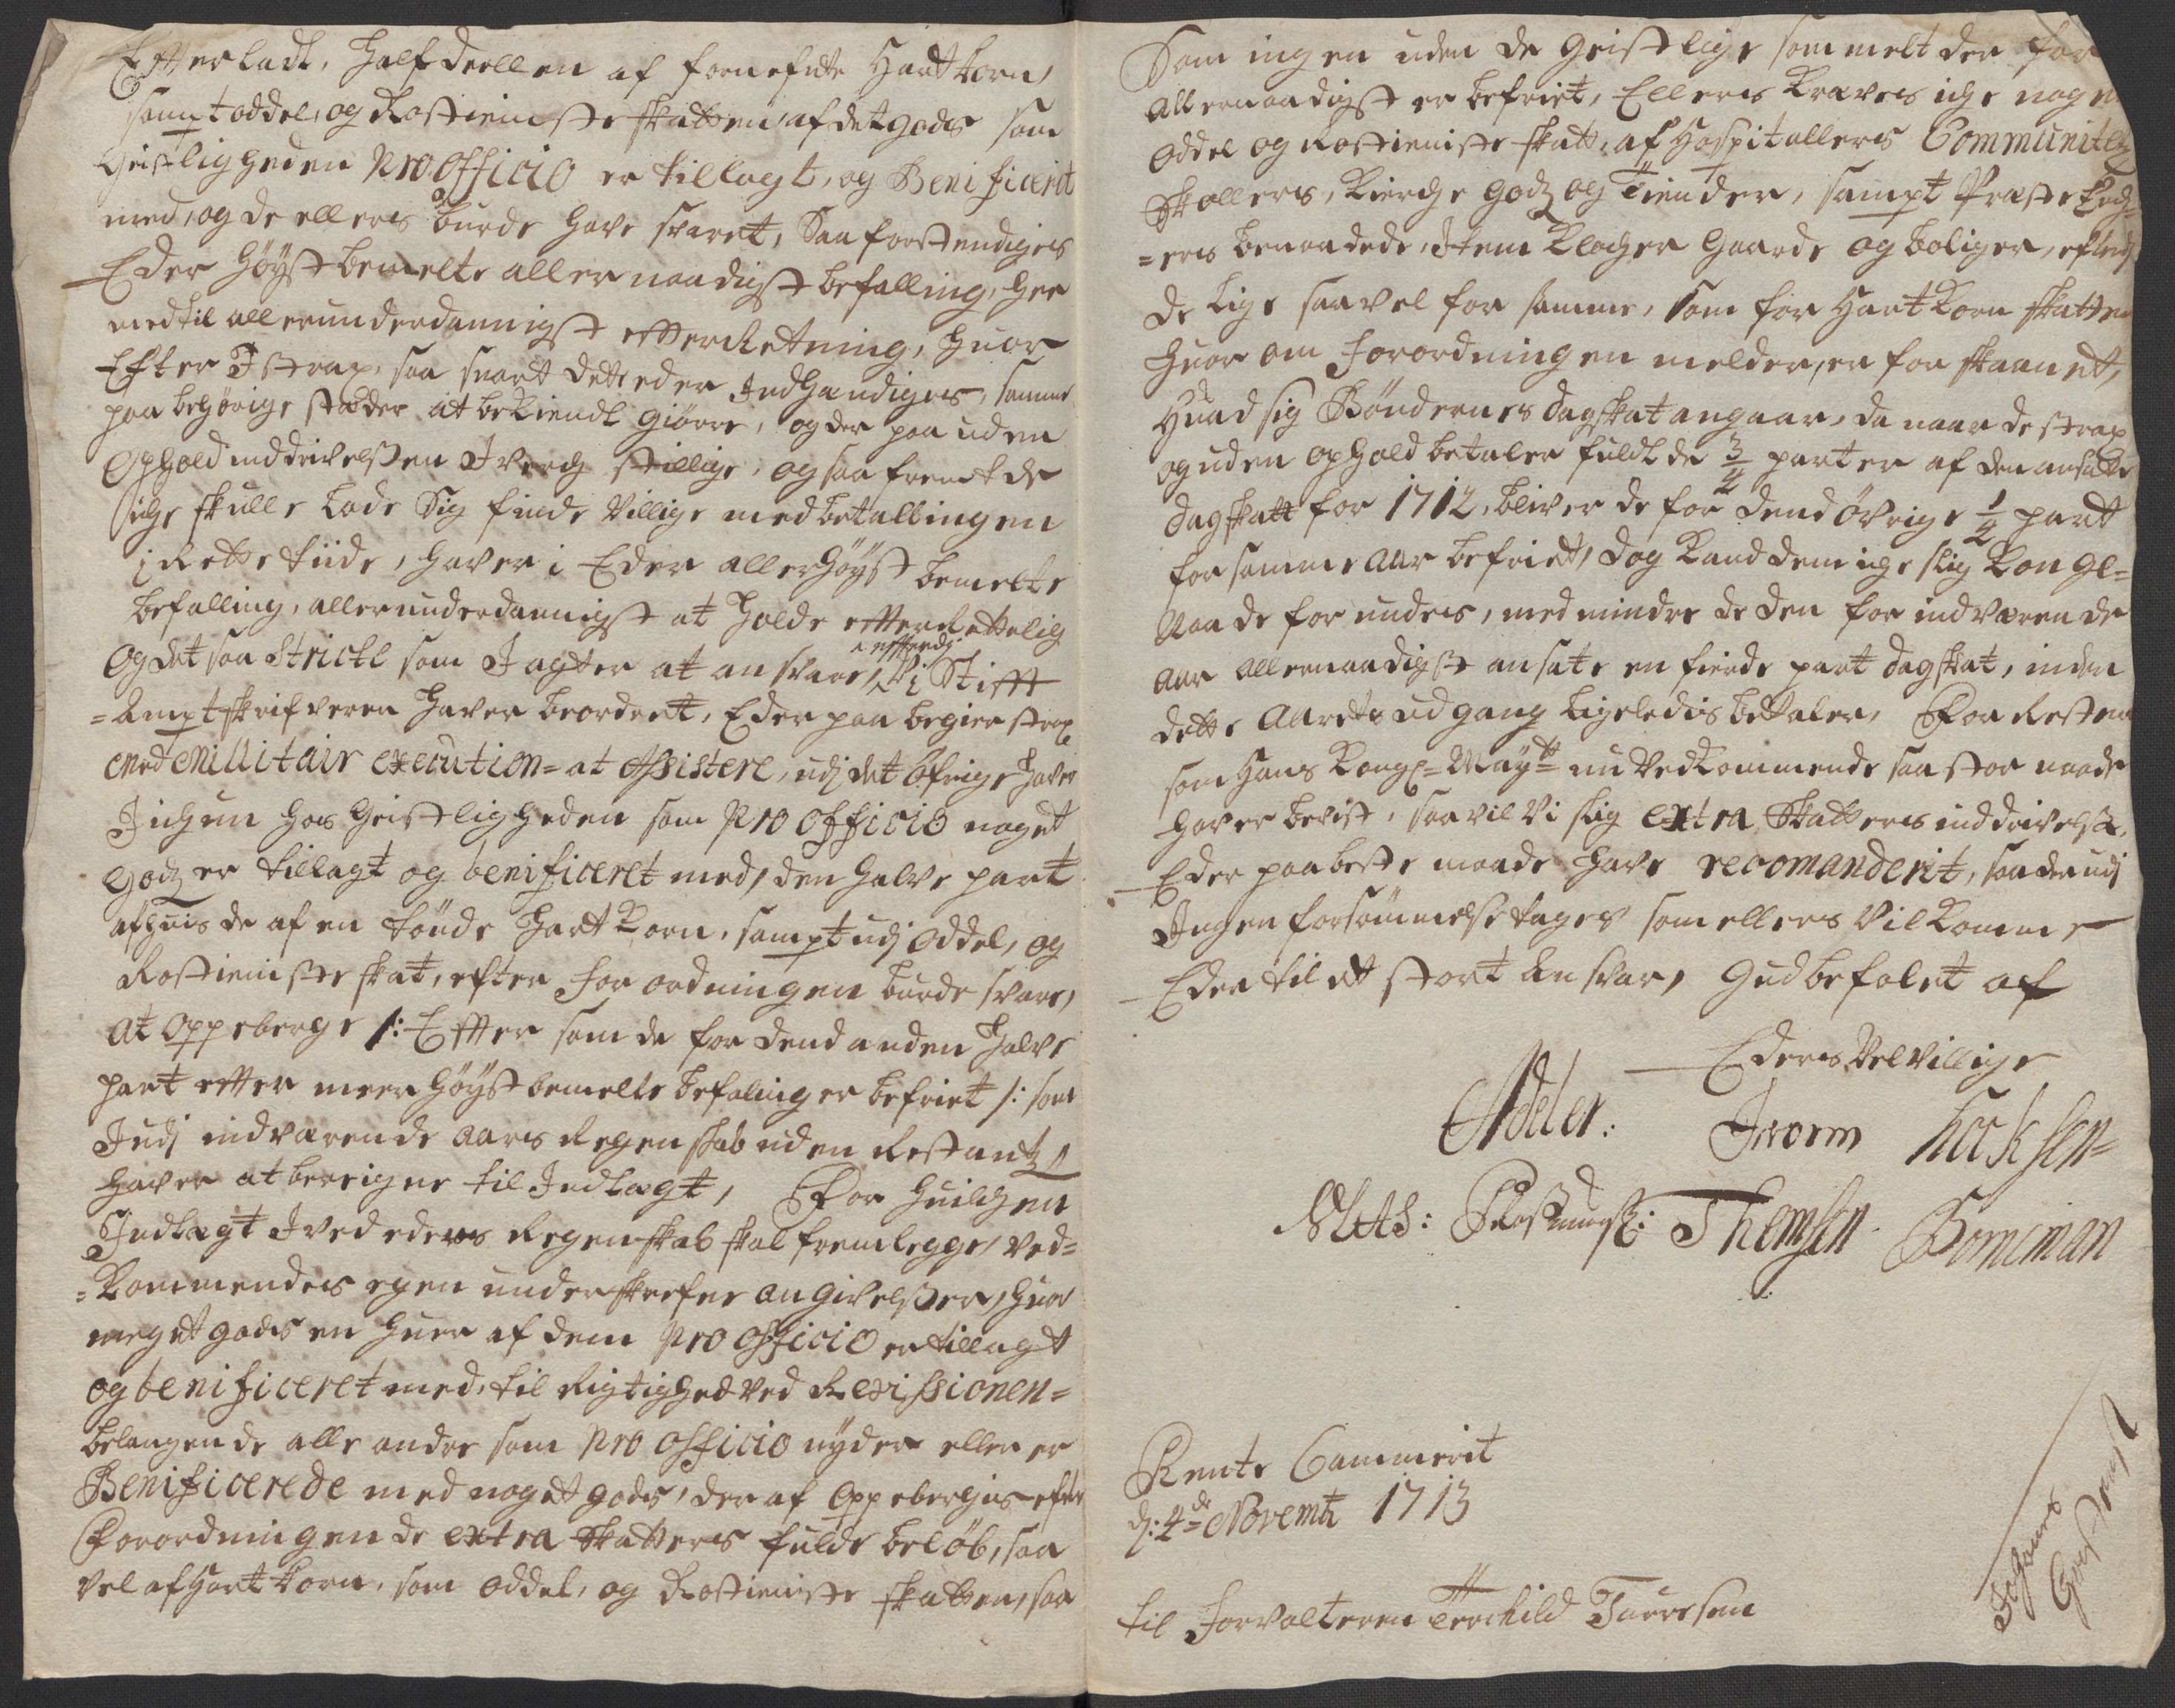 Efterladt, Halfdeellen af fornefnte Hartkorn,
sampt oddel, og Rostieniste skatten, af det gods som
Geistligheden pro officio er tillagt, og Benificerit
med, og de ellers burde have svaret, Saa forstendiges
Eder Høyst bemelte allernaadigst befalling, her
med til allerunderdannigst efterRetning, huor
Efter I strax, saa snart dette eder Indhændiges, samme
paa behørige stæder at bekiendt giørre, og der paa uden
Ophold inddrivelssen Iverch stillige, og saa fremt de
iche skulle lade Sig finde Villige med betallingen
i Rette tiide, haver i Eder allerhøyst bemelte
befalling, allerunderdannigst at holde efterrettelig
Og det saa Strictt som I agter at ansvare, efftersom Vi Stifft
=Amptskrifveren haver beordret, Eder paa begier strax
med Millitair execution= at Assistere, udj det Øfrige haver
I ichun hos Geistligheden som pro officio noget
godz er tillagt og benificeret med, den halve part
af huis de af en tønde HartKorn, sampt udj Oddel, og
Rostieniste skat, efter Forordningen burde svare,
at Oppeberge /: Efter som de for dend anden halve
part efter meer høyst bemelte befaling er befriet :/ som
I udj indværende Aars Regenskab uden Restantz
haver at beregne til Indtægt, For huilchen
Indtægt I ved eders Regenskab skal fremlegge, ved=
=Kommendes egen underskrefne angivelsser, huor
meget gods en huer af dem pro officio er tillagt
og benificeret med, til Rigtighed ved Revissionen=
belangende alle andre som pro officio nyder eller er
Benificerede med noget gods, der af Oppeberges efter
Forordningen de extra Skatters fulde beløb, saa
vel af Hartkorn, som Oddel, og Rostieniste skatten, saa
Som ingen uden de Geistlige som melt der for
allernaadigst er befriet, Ellers Kræves iche nogen
Oddel og Rostieniste skatt, af Hospitallers Communitets
Skollers, Kierche godz og Tiender, sampt Præste Ench=
=ers benaadede, Item Klocher Gaarde og boliger, efterdj
de lige saavel for samme, som for HartKorn skatten
huor om Forordningen melder, er forskaanet,
Huad sig Bøndernes dagskat angaar, da naar de strax
og uden ophold betaler fuldt de 3/4 parter af den ansatte
dagskatt for 1712, bliver de for dend øvrige 1/4 part
for samme Aar befriet, dog Kand dem iche slig Kongl=
Naade forundes, med mindre de den for indværende
Aar allernaadigst ansate en fierde part dagskat, inden
dette Aarets udgang ligeledis bettaler, For Resten
som Hans Kongl= May:tt= nu vedkommende saa stor naade
haver bevist, saa vil Vi slig extra Skatters inddrivelse,
Eder paa beste maade have recomanderit, saa der udj
Ingen forsømmelse tages som ellers Vil komme
Eder til et stort Ansvar, Gud befalet af
Eders Velvillige
Adeler: Worm
Thomsen
Rente Cammerit
d: 4de Novembr 1713
til Forvalteren Terchild Tuersen